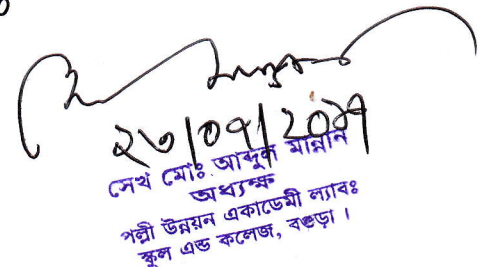 সেখ মোঃ আব্দুল মান্নান
অধ্যক্ষ
পল্লী উন্নয়ন একাডেমী ল্যাবঃ
স্কুল এন্ড কলেজ, বগুড়া ।